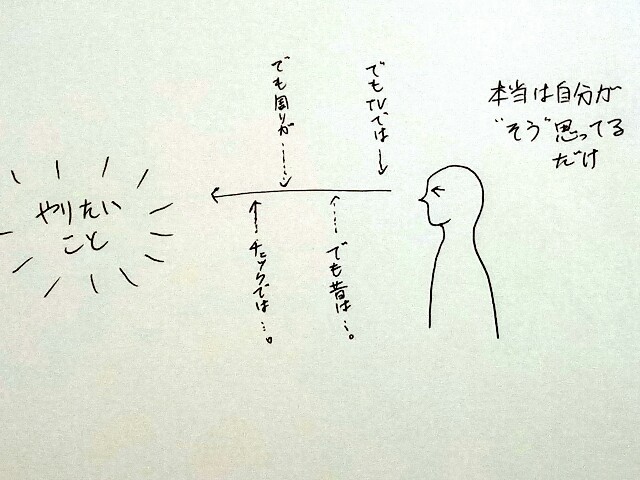 本当は自分が
"そう"思ってる
だけ
でもTVでは
でも周りが……
やりたい
こと
チェックでは…。
でも昔は…。